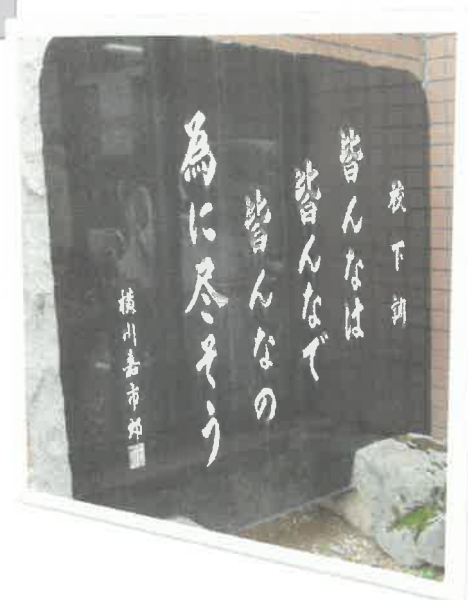 校下訓
皆んなは
皆んなで
皆んなの
為に尽そう
横川嘉市郎